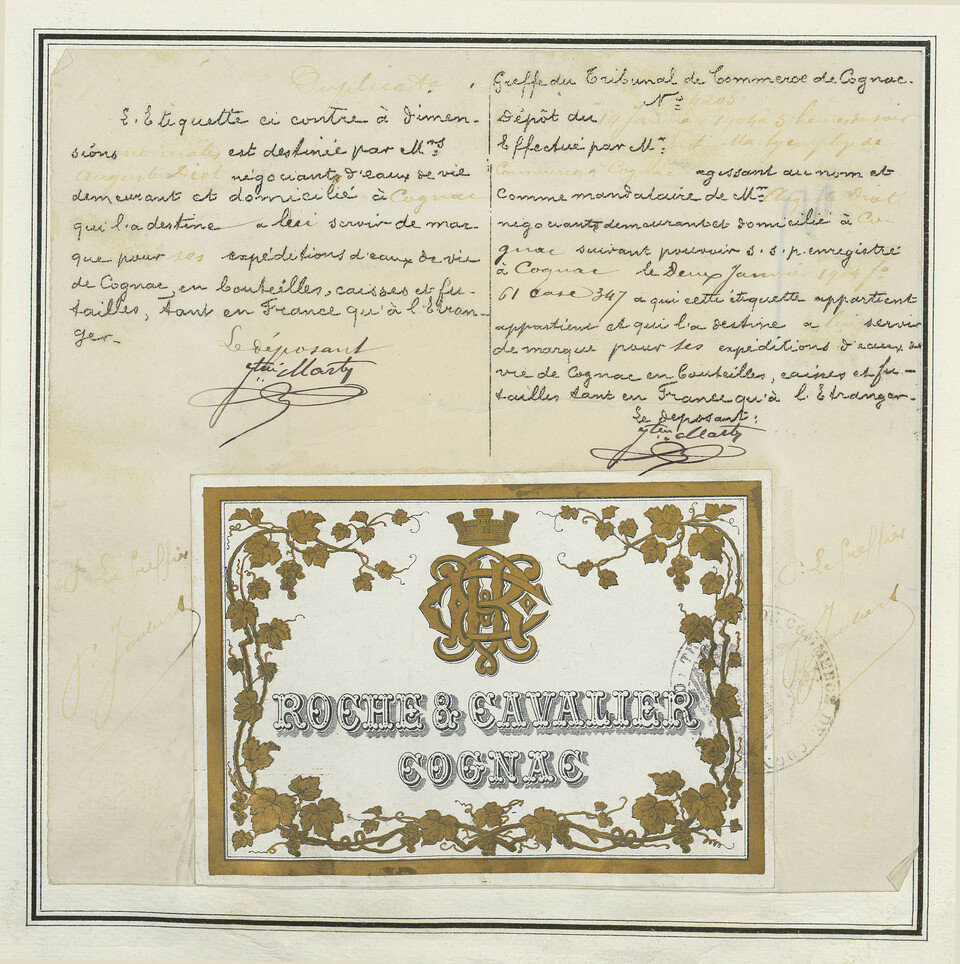 Duplicata.
L'Etiquette ci contre à dimen-
sions normales est destinée par Mrs
Auguste Diot négociants d'eaux de vie
demeurant et domicilié à Cognac
qui l'a destine a lui servir de mar-
que pour ses expéditions d'eaux de vie
de Cognac, en bouteilles, caisses et fu-
tailles, tant en France qu'à l'Etran-
ger.-
Le déposant
Marty
Greffe du Tribunal de Commerce de Cognac.
No 4205
Dépôt du 14 Janvier 1904 à 5 heures du soir
Effectué par Mr Marty employé de
Commerce à Cognac agissant au nom et
Comme mandataire de Mr Aug. Diot
négociants demeurant et domicilié à Co
gnac suivant pouvoir s.s.p. enregistré
à Cognac le Deux Janvier 1904 fo
61 case 347 a qui cette étiquette appartient
appartient et qui l'a destine a lui servir
de marque pour ses expéditions d'eaux de
vie de Cognac en bouteilles, caisses et fu-
tailles tant en France qu'à l'Etranger-
Le déposant:
Marty
Le Greffier
Le Greffier
ROCHE & CAVALIER
COGNAC